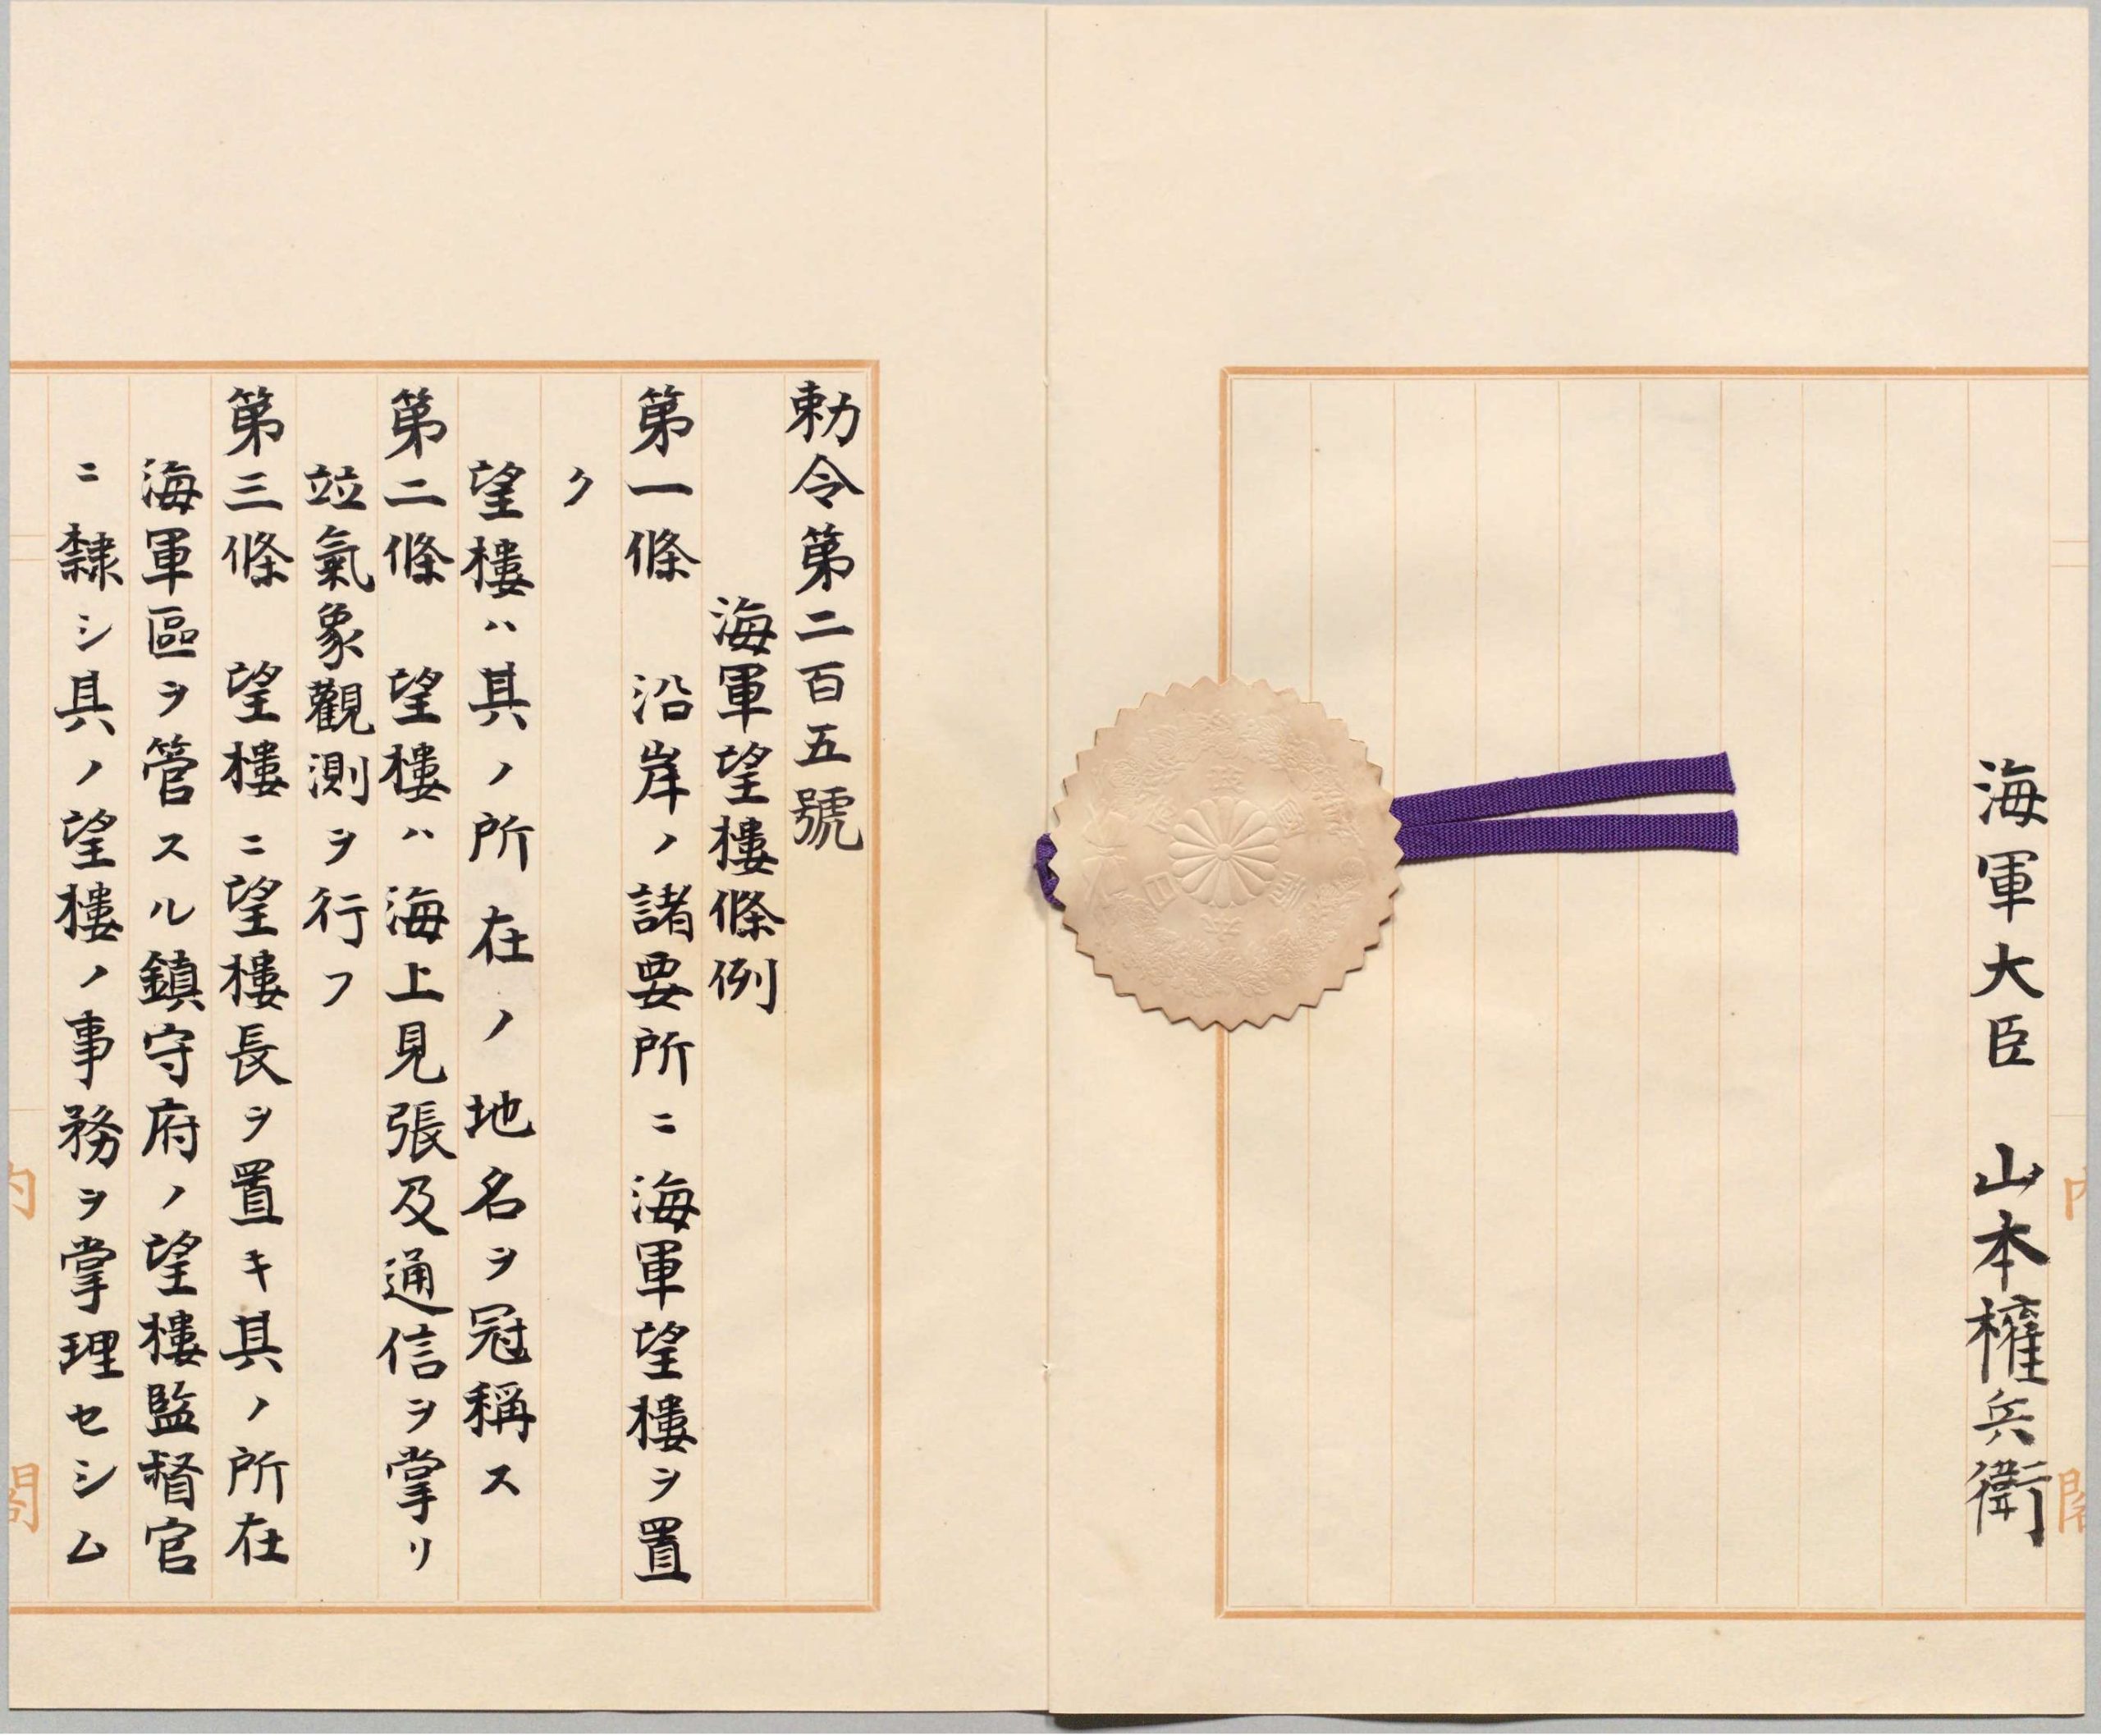 海軍大臣 山本權兵衞
内閣
勅令第二百五號
海軍望樓條例
第一條 沿岸ノ諸要所ニ海軍望樓ヲ置
ク
望樓ハ其ノ所在ノ地名ヲ冠稱ス
第二條 望樓ハ海上見張及通信ヲ掌リ
竝氣象觀測ヲ行フ
第三條 望樓ニ望樓長ヲ置キ其ノ所在
海軍區ヲ管スル鎮守府ノ望樓監督官
ニ隸シ具ノ望樓ノ事務ヲ掌理セシム
内閣